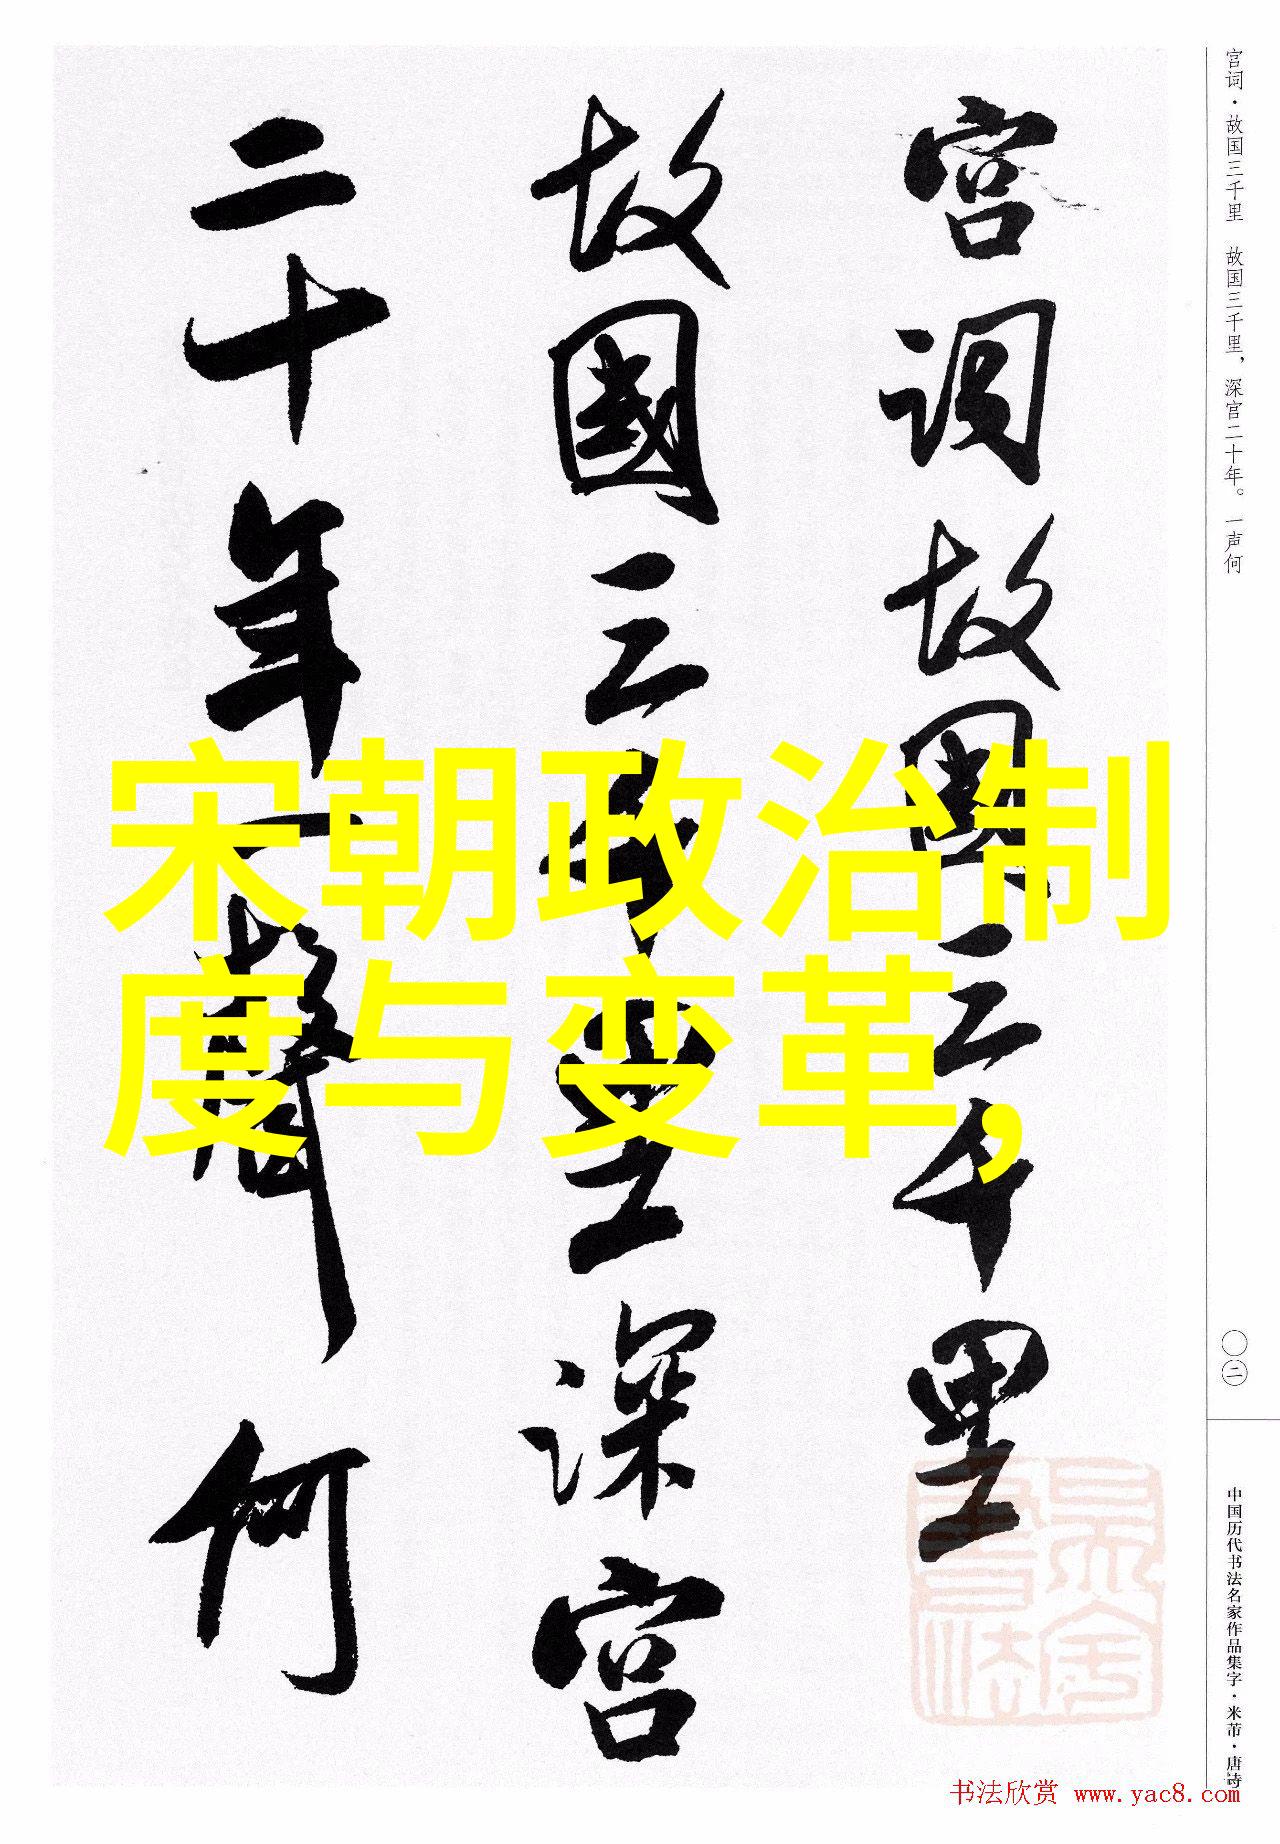 宫词故国三千里
故國三千里深宫
二十年一聲何
宋朝政治制
度与变革,
宫词·故国三千里 故国三千里，深宫二十年。一声何
〇二
中国历代书法名家作品集字·米芾·唐诗
书法欣赏 www.yac8.com